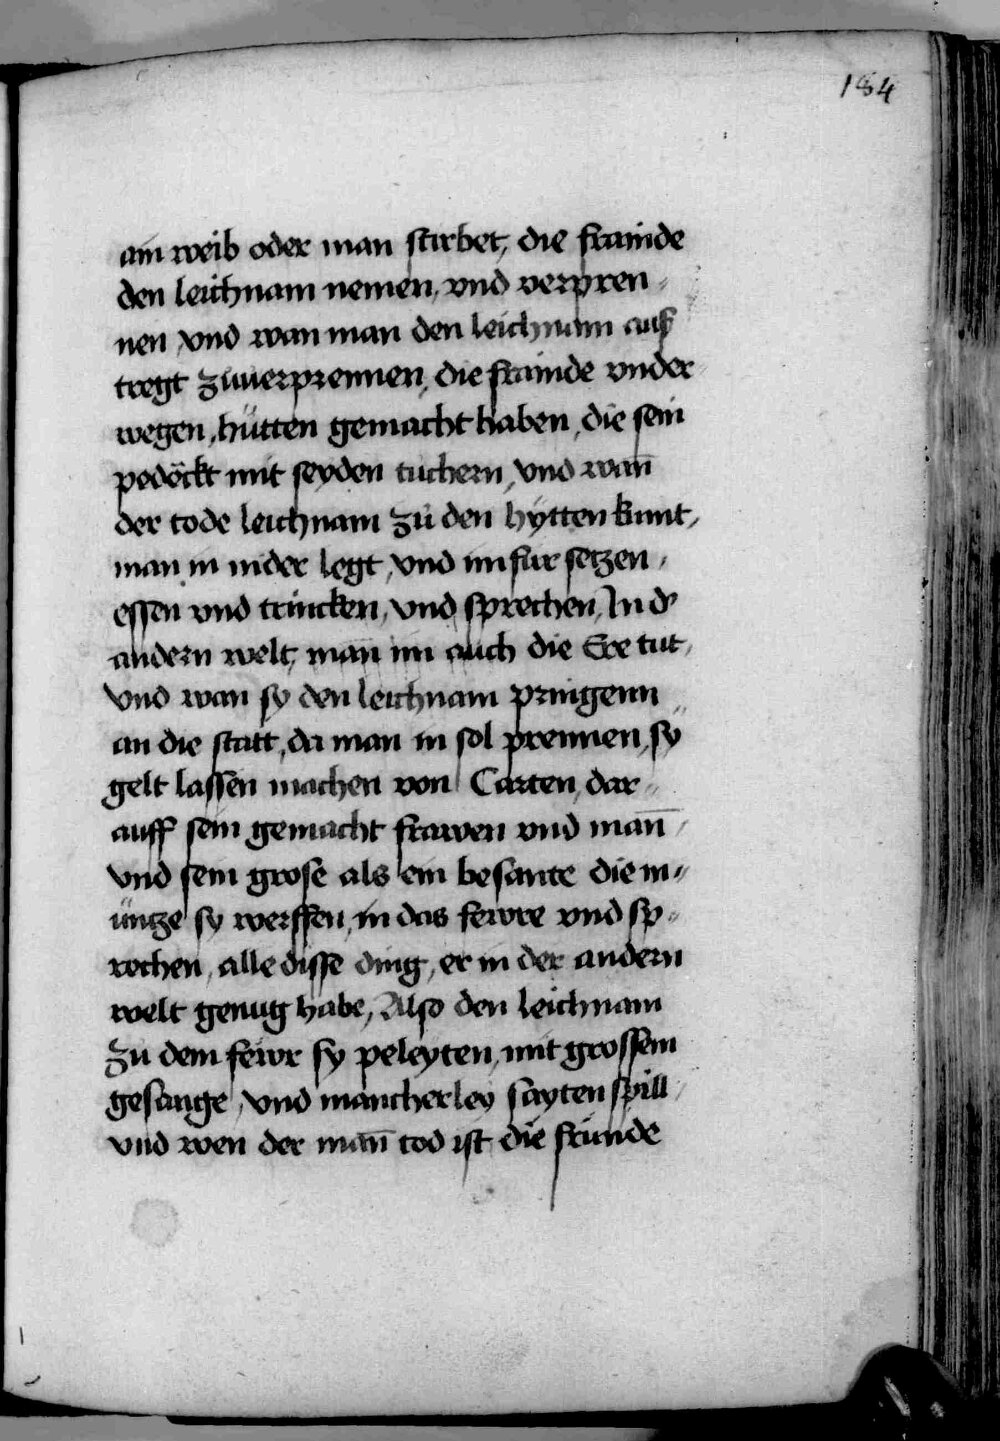 184
ain weib oder man stirbet, die frainde
den leichnam nemen, vnd verpren„
nen, vnd wan man den leichnam auf
tregt zuuerprennen, die frainde vnder
wegen, hütten gemacht haben, die sein
pedöckt mit seyden tuchern, vnd wan̄
der tode leichnam zů den hÿtten kumt,
man in nider legt, vnd im fur setzen,
essen vnd trincken, vnd sprechen, In d'
andern welt, man im auch die Ere tut,
vnd wan sy den leichnam pringenn
an die statt, da man in sol prennen, sÿ
gelt lassen machen von Carten, dar„
auff sein gemacht frawen vnd man̄,
vnd sein grose als ein besante die m„
üntze sy werffen, in das fewre vnd sp„
rechen, alle disse ding, er in der andern
welt genug habe, Also den leichnam
zu dem fewr sy peleyten, mit grossem
gesange, vnd mancherley sayten spill,
vnd wen der man̄ tod ist die fründe